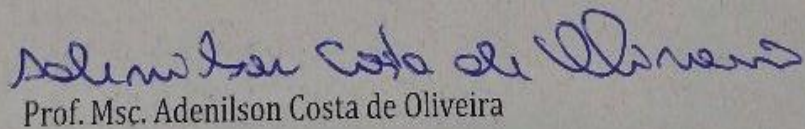 Adenilson Costa de Oliveira
Prof. Msc. Adenilson Costa de Oliveira